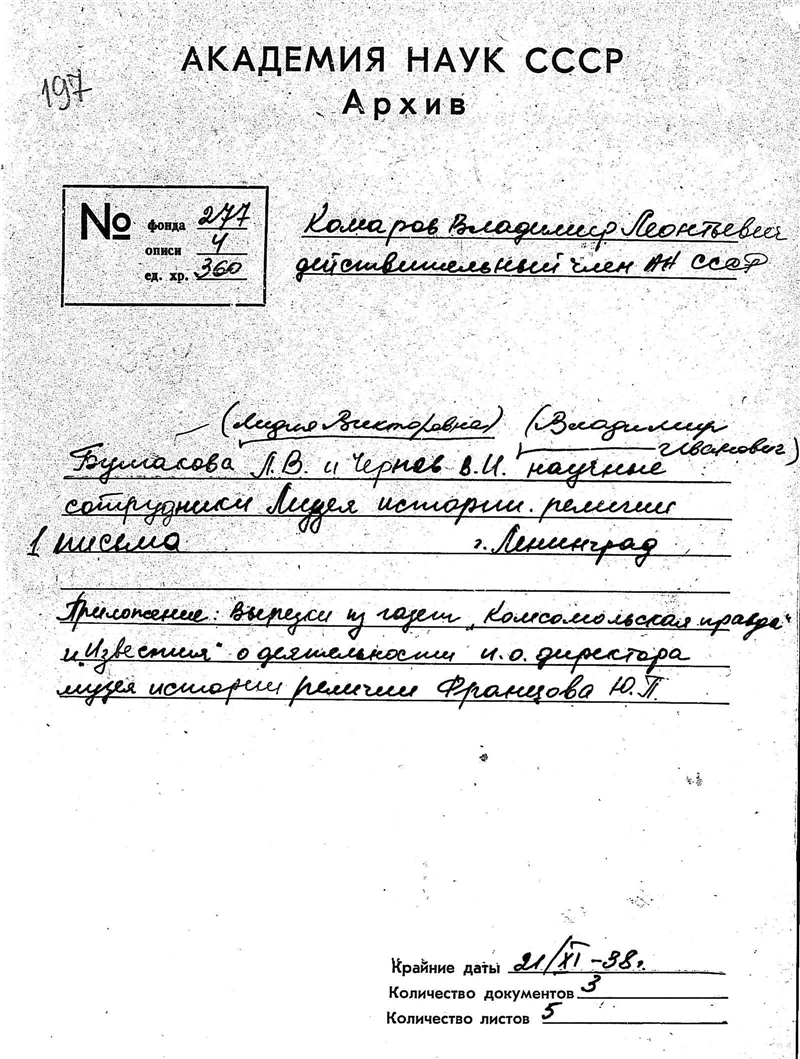 АКАДЕМИЯ НАУК СССР
Архив
197
№ фонда 277
описи 4
ед. хр. 360
Комаров Владимир Леонтьевич
действительный член АН СССР
(Лидия Викторовна) (Владимир
Иванович)
Булакова Л.В. и Чернев В.И. научные
сотрудники Музея истории религии
1 письма г. Ленинград
Приложение: Вырезки из газет „Комсомольская правда"
и „Известия" о деятельности и.о. директора
музея истории религии Францова Ю.П.
Крайние даты 21/XI-38г.
Количество документов 3
Количество листов 5